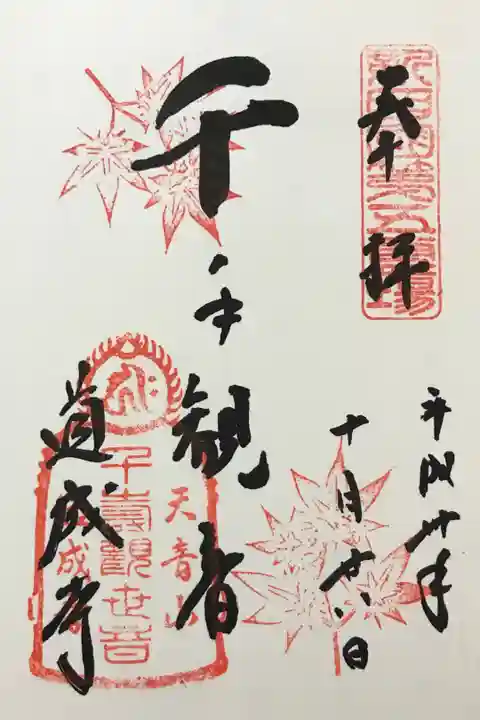 奉拝
平成卅年
十月廿八日
千手観音
道成寺
天音山
千寿観世音